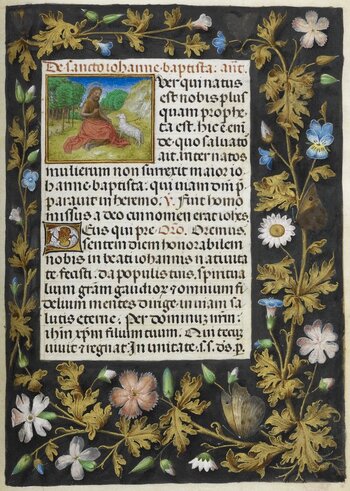 De sancto iohanne baptista: añt.
Puer qui natus
est nobis plus
quam prophe
ta est. hic ē eni
de quo saluator
ait. inter natos
mulierum non surrexit maior io
hanne baptista: qui viam dn̄o p̄
parauit in heremo. V. fuit homo
missus a deo cui nomen erat iohēs.
Deus qui pre. Oro. Oremus.
sentem diem honorabilem
nobis in beati iohannis natiuita
te fecisti. da populis tuis, spiritua
lium gr̄am gaudiorum et omnium fi
delium mentes dirige. in uiam sa
lutis eterne. Per dominum nr̄m
ihm xp̄m filium tuum. Qui tecum
viuit et regnat In vnitate .s.s. ds. p.